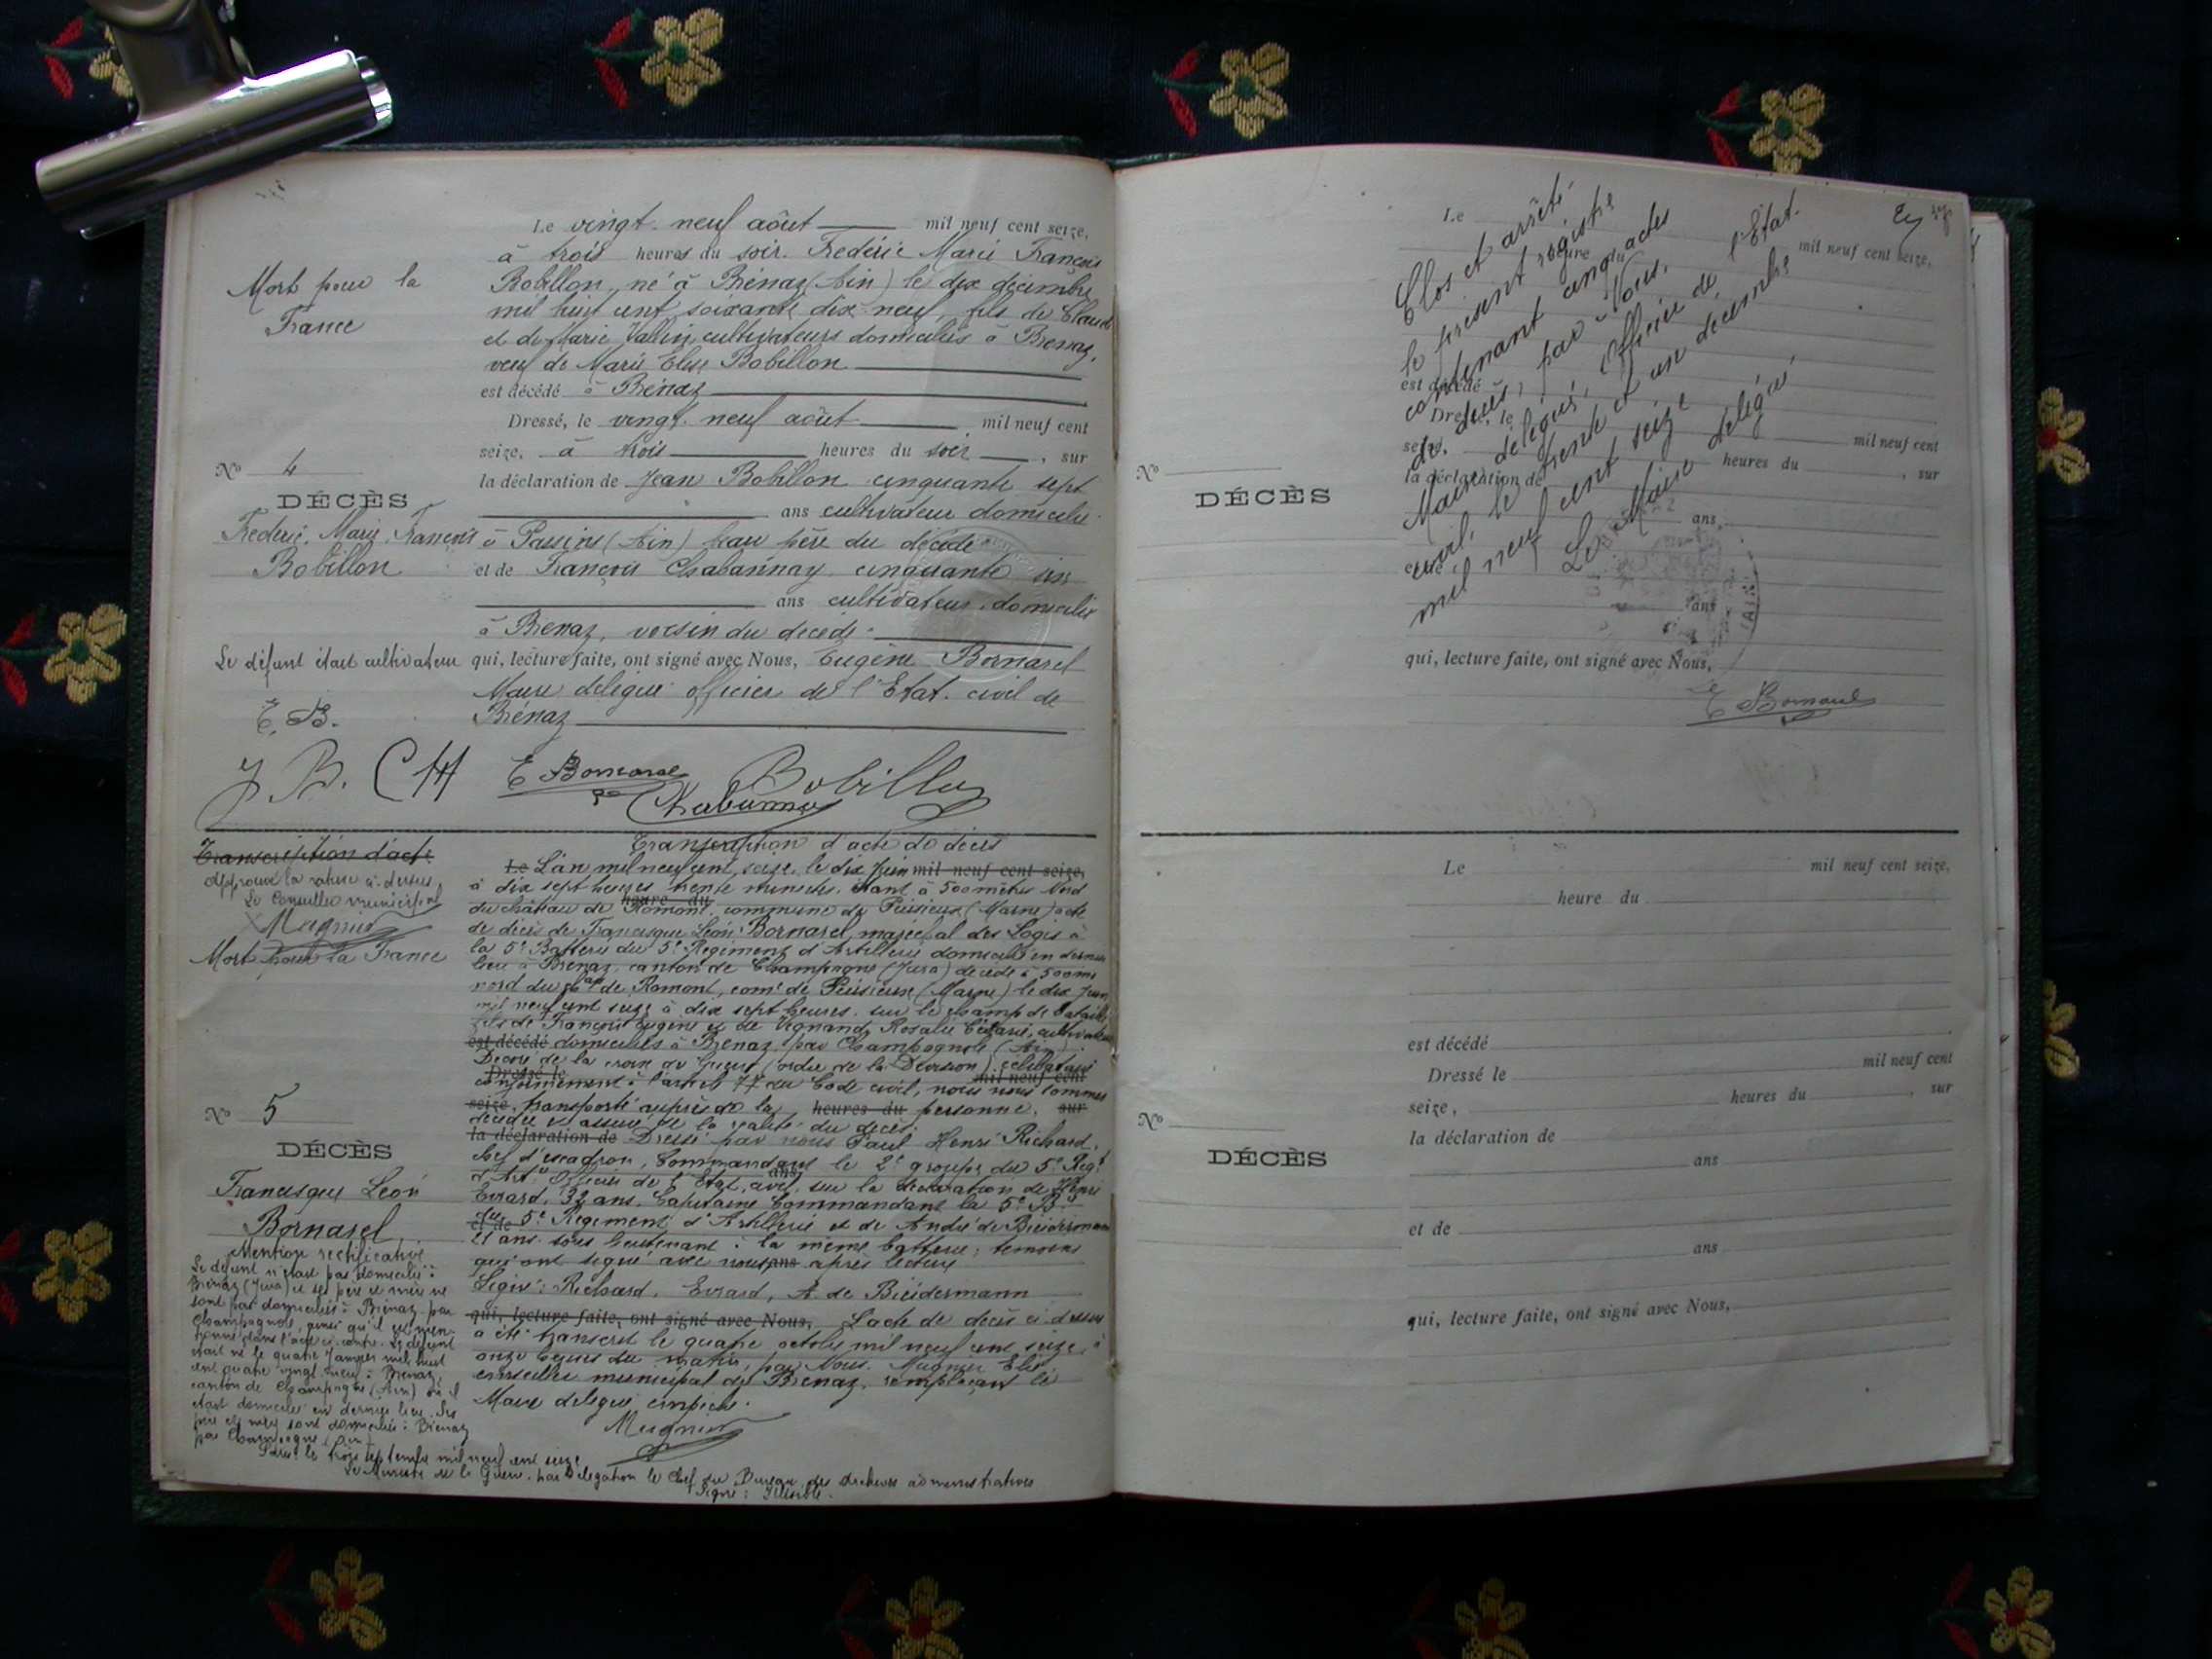 Le vingt-neuf août mil neuf cent seize,
à trois heures du soir. Frédéric Marie François
Bobillon, né à Brénaz (Ain) le dix décembre
mil huit cent soixante dix-neuf, fils de Claude
et de Marie Vallin cultivateurs domiciliés à Brénaz,
veuf de Marie Elise Bobillon
est décédé à Brénaz
Dressé, le vingt-neuf août mil neuf cent
seize, à trois heures du soir, sur
la déclaration de Jean Bobillon cinquante sept
ans cultivateur domicilié
à Passins (Ain) beau père du décédé
et de François Chabannay cinquante
ans cultivateur domicilié
à Brénaz, voisin du décédé
qui, lecture faite, ont signé avec Nous, Eugène Bornarel
Maire délégué officier de l'Etat-civil de
Brénaz
Mort pour la
France
No 4
DÉCÈS
Frédéric, Marie, François
Bobillon
Le défunt était cultivateur
E. B.
J. B. CH E Bornarel Bobillon
Chabannay
Transcription d'acte
Approuvé la rature ci-dessus
Le Conseiller municipal
Mugnier
Mort pour la France
No 5
DÉCÈS
Francisque Léon
Bornarel
Mention rectificative
Le défunt n'était pas domicilié à
Brénaz (Jura) et ses père et mère ne
sont pas domiciliés à Brénaz par
Champagnole, ainsi qu'il est men-
tionné dans l'acte ci-contre. Le défunt
était né le quatre Janvier mil huit
cent quatre vingt neuf à Brénaz,
canton de Champagne (Ain) où il
était domicilié en dernier lieu. Ses
père et mère sont domiciliés à Brénaz
par Champagne (Ain)
Paris le trois septembre mil neuf cent seize
Le Ministre de la Guerre. par Délégation le Chef du Bureau des Archives administratives
Signé : Illisible.
Transcription d'acte de décès
Le L'an mil neuf cent seize, le dix Juin mil neuf cent seize,
à dix sept heures trente minutes, étant à 500 mètres Nord
heure du
du château de Romont, commune de Puisieux (Marne) acte
de décès de Francisque Léon Bornarel, maréchal des Logis à
la 5e Batterie du 5e Régiment d'Artillerie domicilié en dernier
lieu à Brénaz, canton de Champagne (Jura) décédé à 500 ms
nord du chau de Romont, come de Puisieux (Marne) le dix Juin
mil neuf cent seize à dix sept heures, sur le champ de bataille
fils de François Eugène et de Vignand Rosalie Célanie, cultivateurs
est décédé domiciliés à Brénaz par Champagnole (Ain).
Décoré de la croix de Guerre (ordre de la Division) célibataire
Dressé le mil neuf cent
conformément à l'article 77 du Code civil, nous nous sommes
seize, transporté auprès de la heures du personne, sur
décédée et assuré de la réalité du décès.
la déclaration de Dressé par nous Paul Henri Richard,
chef d'escadron, Commandant le 2e groupe du 5e Régt
ans
d'Artie Officier de l'Etat civil, sur la déclaration de Henri
Evrard, 32 ans, Capitaine Commandant la 5e Bie
et de du 5e Régiment d'Artillerie et de André de Bieidermann
21 ans sous lieutenant à la même batterie ; témoins
qui ont signé avec nous ans après lecture
Signé : Richard, Evrard, A. de Bieidermann
qui, lecture faite, ont signé avec Nous, L'acte de décès ci-dessus
a été transcrit le quatre octobre mil neuf cent seize, à
onze heures du matin, par Nous, Mugnier Elie,
conseiller municipal de Brénaz, remplaçant le
Maire délégué empêché.
Mugnier
Le mil neuf cent seize,
heure du
est décédé
Dressé, le mil neuf cent
seize, heures du , sur
la déclaration de
ans,
et de
ans
qui, lecture faite, ont signé avec Nous,
No
DÉCÈS
Clos et arrêté
le présent registre
contenant cinq actes
de décès, par Nous,
Maire délégué, Officier de l'Etat-
civil, le trente et un décembre
mil neuf cent seize
Le Maire délégué
E Bornarel
Le mil neuf cent seize,
heure du
est décédé
Dressé le mil neuf cent
seize, heures du , sur
la déclaration de
ans
et de
ans
qui, lecture faite, ont signé avec Nous,
No
DÉCÈS